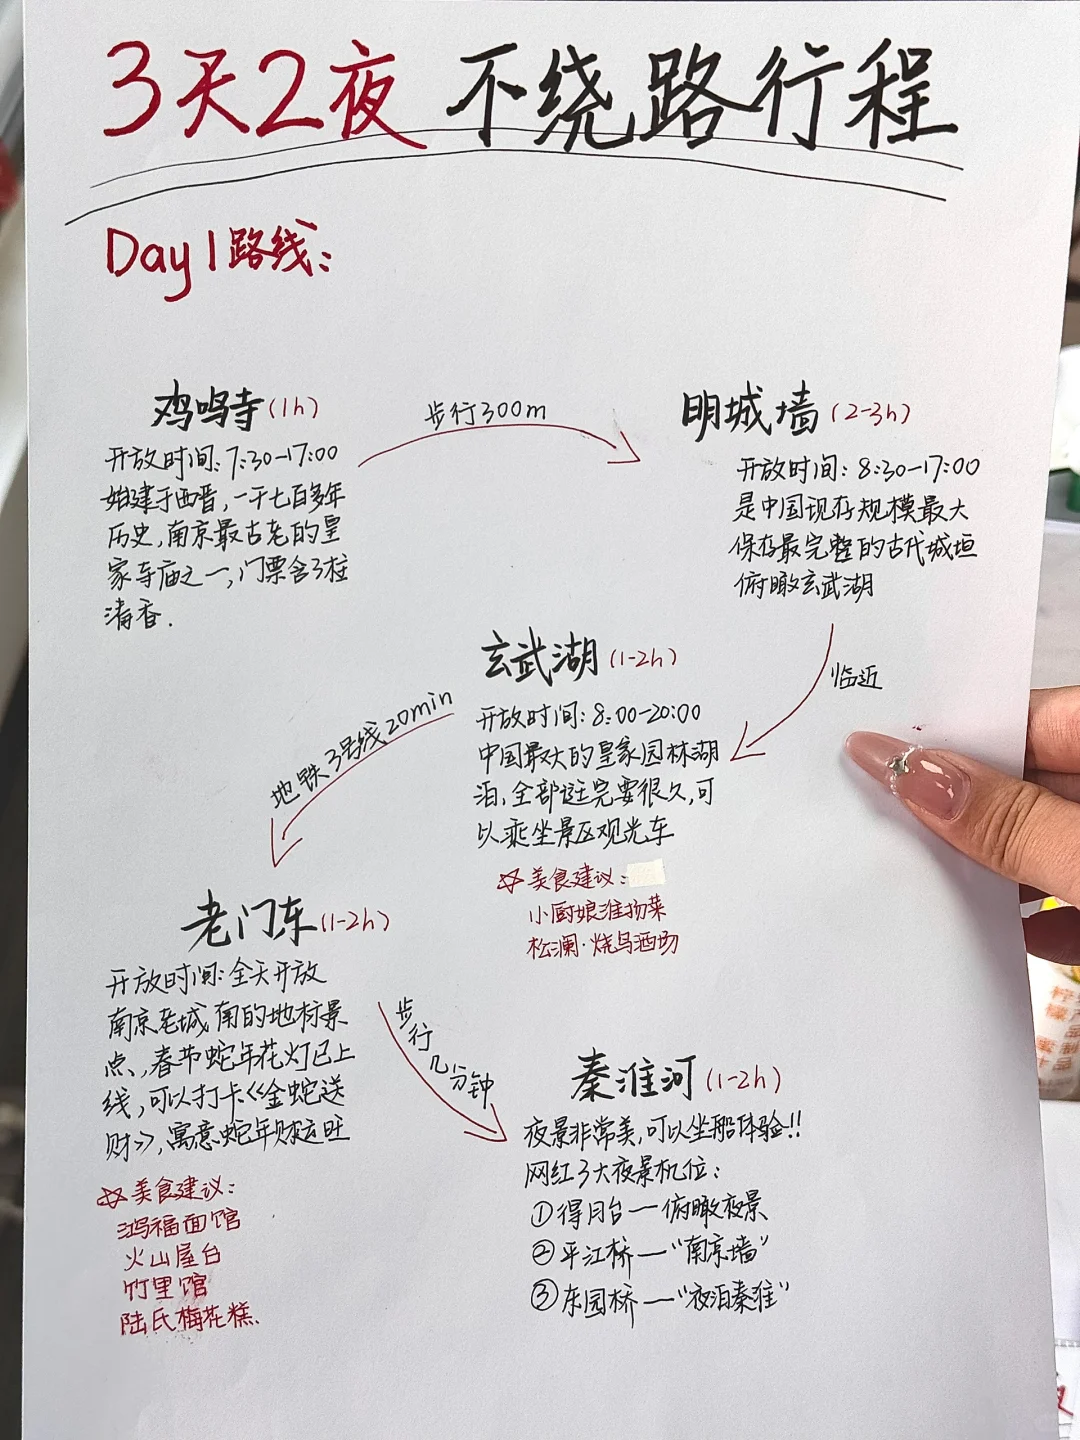 3天2夜 不绕路行程
Day1路线:
鸡鸣寺(1h)
开放时间:7:30-17:00
始建于西晋,一千七百多年
历史,南京最古老的皇
家寺庙之一,门票含3柱
清香.
步行300m
明城墙(2-3h)
开放时间:8:30-17:00
是中国现存规模最大
保存最完整的古代城垣
俯瞰玄武湖
临近
玄武湖(1-2h)
开放时间:8:00-20:00
中国最大的皇家园林湖
泊,全部逛完要很久,可
以乘坐景区观光车
美食建议:
小厨娘淮扬菜
松澜·烧鸟酒场
地铁3号线20min
老门东(1-2h)
开放时间:全天开放
南京老城南的地标景
点,春节蛇年花灯已上
线,可以打卡《金蛇送
财》,寓意蛇年财运旺
美食建议:
鸿福面馆
火山屋台
竹里馆
陆氏梅花糕.
步行几分钟
秦淮河(1-2h)
夜景非常美,可以坐船体验!!
网红3大夜景机位:
①得月台—俯瞰夜景
②平江桥—"南京墙"
③东园桥—"夜泊秦淮"